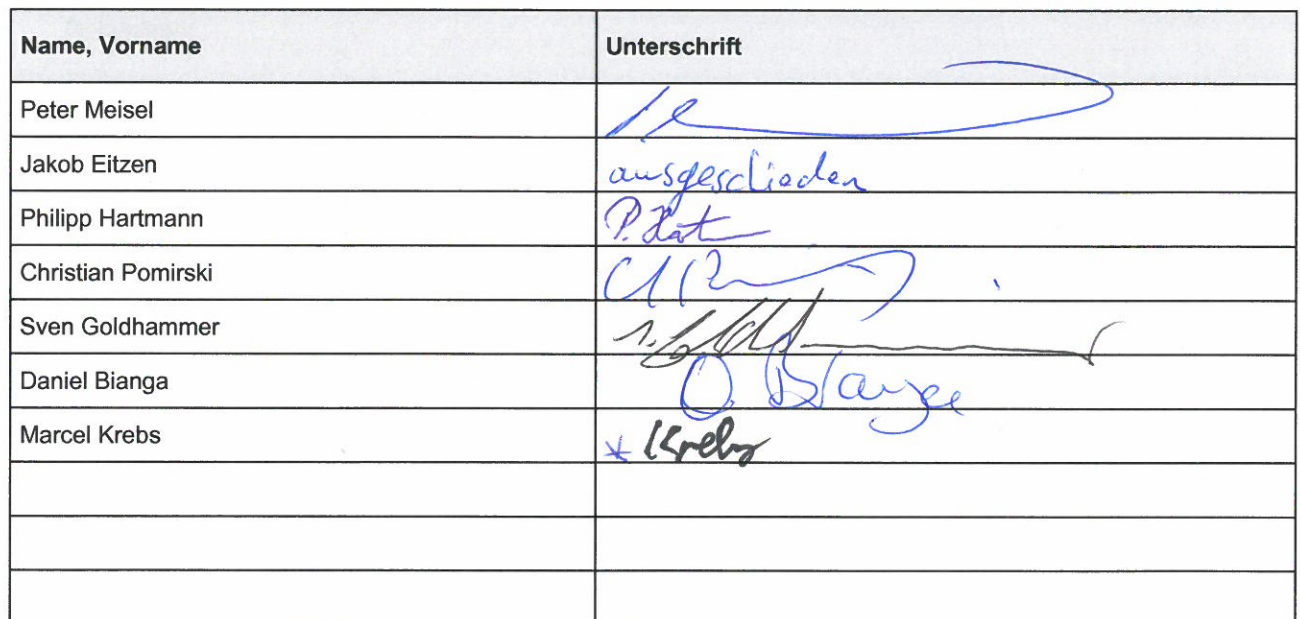 Name, Vorname Unterschrift
Peter Meisel
Jakob Eitzen ausgeschieden
Philipp Hartmann P. Hat
Christian Pomirski
Sven Goldhammer
Daniel Bianga D. Bianga
Marcel Krebs * Krebs